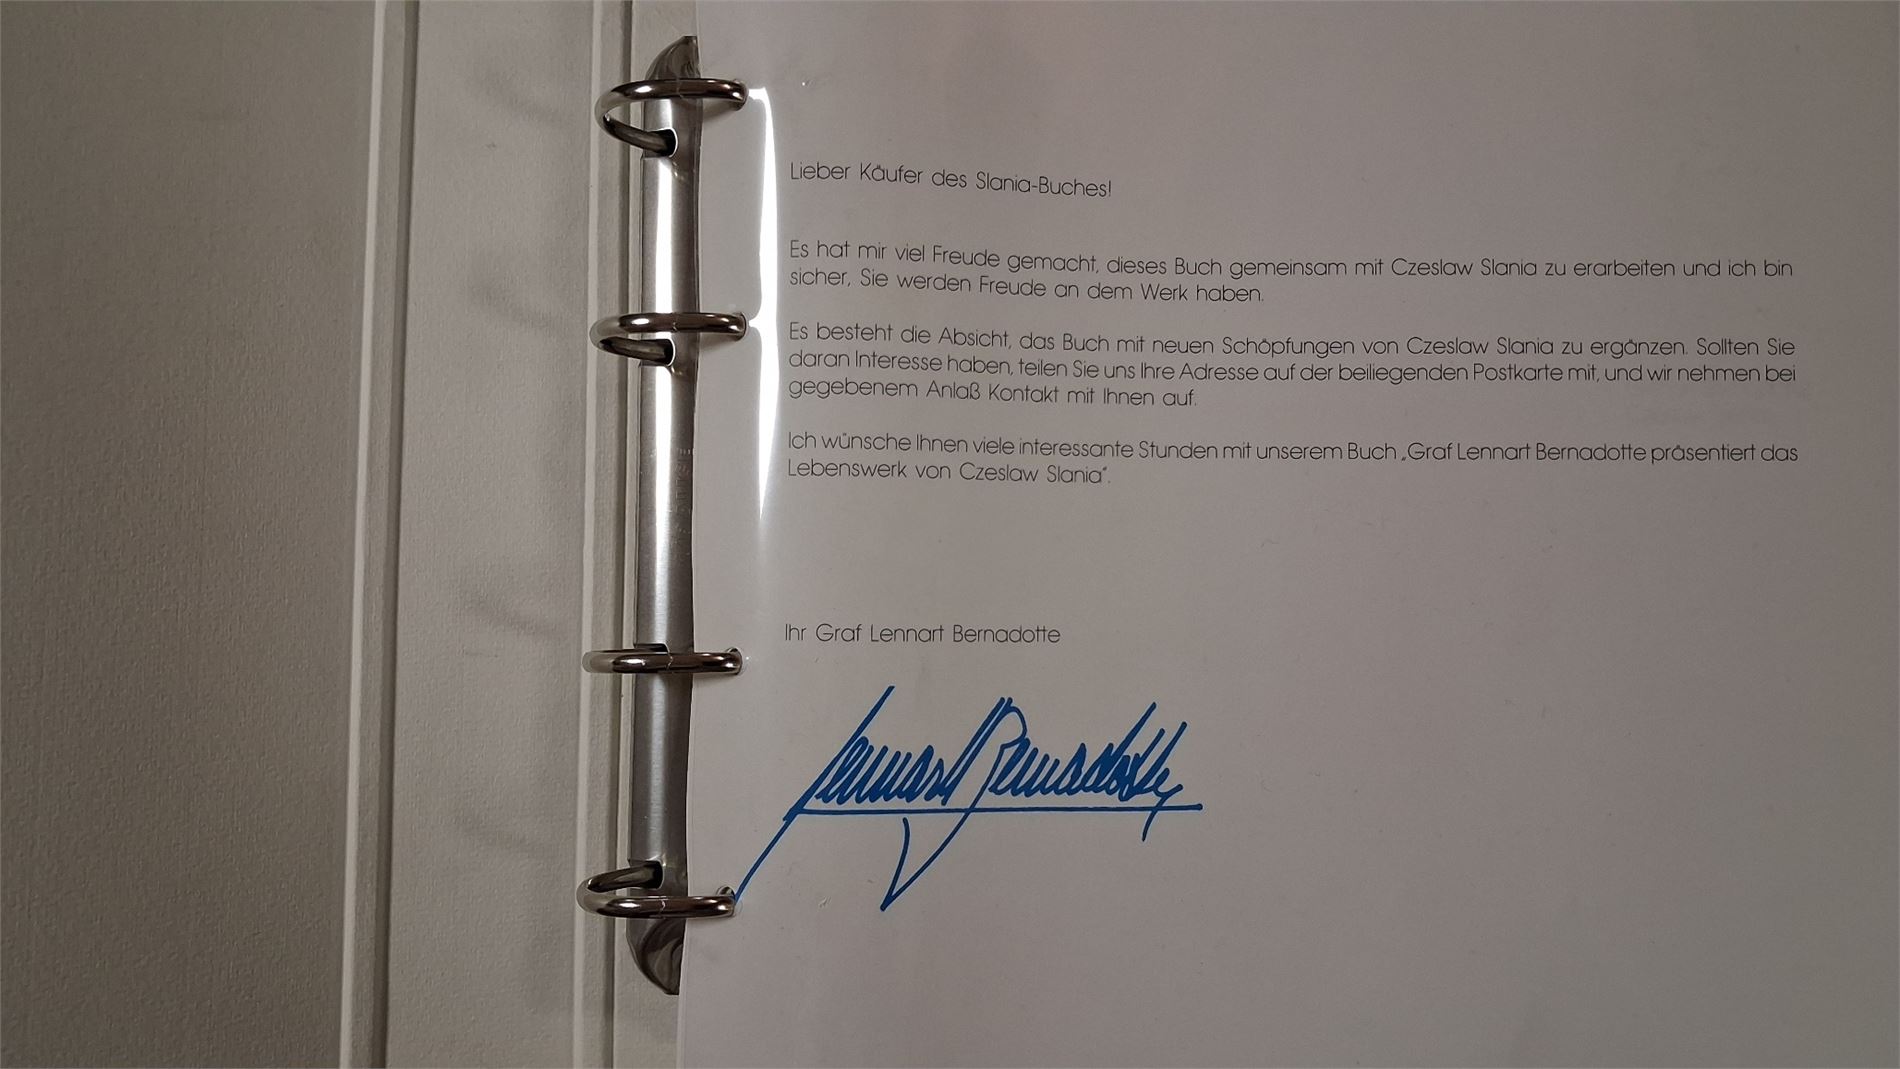 Lieber Käufer des Slania-Buches!
Es hat mir viel Freude gemacht, dieses Buch gemeinsam mit Czeslaw Slania zu erarbeiten und ich bin
sicher, Sie werden Freude an dem Werk haben.
Es besteht die Absicht, das Buch mit neuen Schöpfungen von Czeslaw Slania zu ergänzen. Sollten Sie
daran Interesse haben, teilen Sie uns Ihre Adresse auf der beiliegenden Postkarte mit, und wir nehmen bei
gegebenem Anlaß Kontakt mit Ihnen auf.
Ich wünsche Ihnen viele interessante Stunden mit unserem Buch „Graf Lennart Bernadotte präsentiert das
Lebenswerk von Czeslaw Slania“.
Ihr Graf Lennart Bernadotte
Lennart Bernadotte